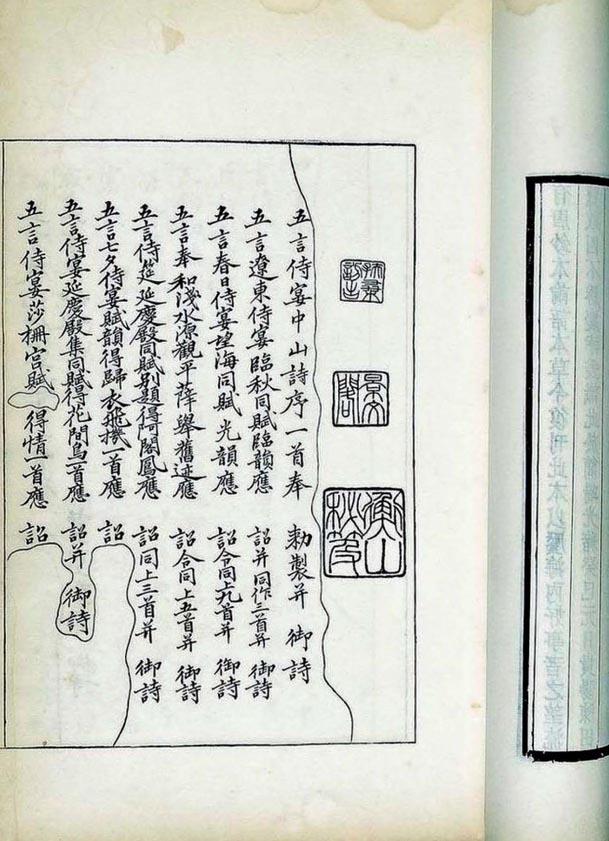 五言侍宴中山詩序一首奉　勅製并　御詩
五言遼東侍宴臨秋同賦臨韻應　詔并同作三首并　御詩
五言春日侍宴望海同賦光韻應　詔令同上九首并　御詩
五言奉和淺水源觀平薛舉舊迹應　詔令同上五首并　御詩
五言侍筵延慶殿同賦別題得阿閣鳳應　詔同上三首并　御詩
五言七夕侍宴賦韻得歸衣飛機一首應　詔
五言侍宴延慶殿集同賦得花間鳥一首應　詔并　御詩
五言侍宴莎柵宮賦　得情一首應　詔